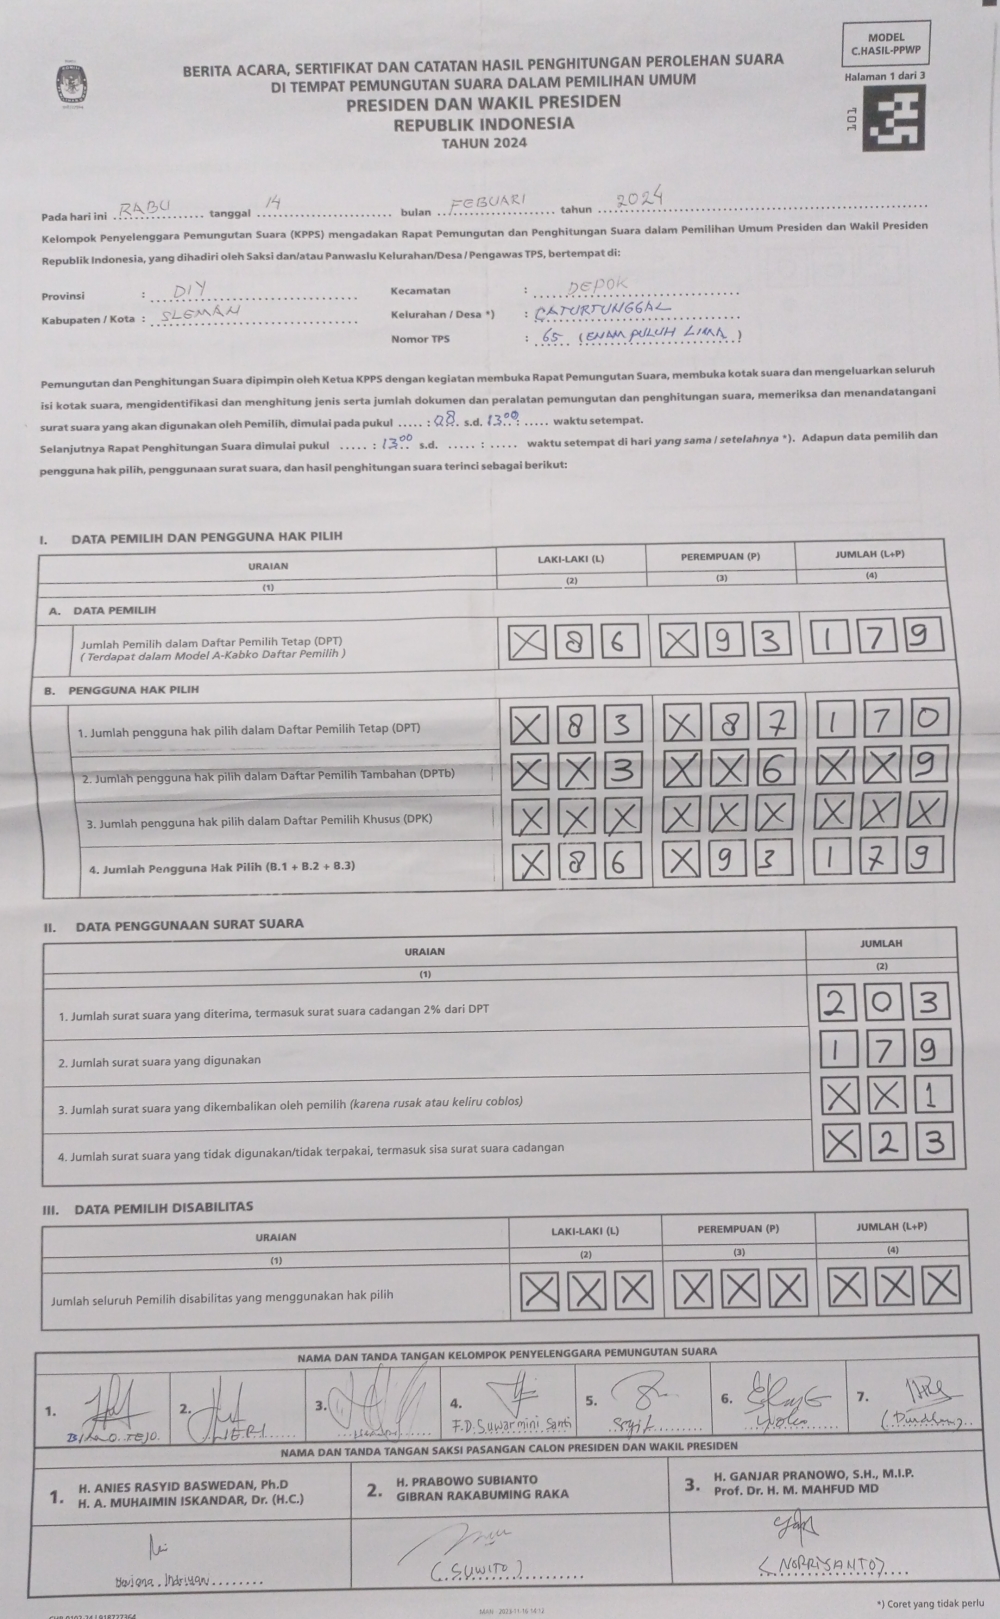 MODEL
C.HASIL-PPWP
Halaman 1 dari 3
101
BERITA ACARA, SERTIFIKAT DAN CATATAN HASIL PENGHITUNGAN PEROLEHAN SUARA
DI TEMPAT PEMUNGUTAN SUARA DALAM PEMILIHAN UMUM
PRESIDEN DAN WAKIL PRESIDEN
REPUBLIK INDONESIA
TAHUN 2024
Pada hari ini RABU tanggal 14 bulan FEBUARI tahun 2024
Kelompok Penyelenggara Pemungutan Suara (KPPS) mengadakan Rapat Pemungutan dan Penghitungan Suara dalam Pemilihan Umum Presiden dan Wakil Presiden
Republik Indonesia, yang dihadiri oleh Saksi dan/atau Panwaslu Kelurahan/Desa / Pengawas TPS, bertempat di:
Provinsi : DIY Kecamatan : DEPOK
Kabupaten / Kota : SLEMAN Kelurahan / Desa *) : CATURTUNGGAL
Nomor TPS : 65 (ENAM PULUH LIMA)
Pemungutan dan Penghitungan Suara dipimpin oleh Ketua KPPS dengan kegiatan membuka Rapat Pemungutan Suara, membuka kotak suara dan mengeluarkan seluruh
isi kotak suara, mengidentifikasi dan menghitung jenis serta jumlah dokumen dan peralatan pemungutan dan penghitungan suara, memeriksa dan menandatangani
surat suara yang akan digunakan oleh Pemilih, dimulai pada pukul ..... : 08. s.d. 13.00 : ..... waktu setempat.
Selanjutnya Rapat Penghitungan Suara dimulai pukul ..... : 13.00 s.d. ..... : ..... waktu setempat di hari yang sama / setelahnya *). Adapun data pemilih dan
pengguna hak pilih, penggunaan surat suara, dan hasil penghitungan suara terinci sebagai berikut:
I. DATA PEMILIH DAN PENGGUNA HAK PILIH
URAIAN LAKI-LAKI (L) PEREMPUAN (P) JUMLAH (L+P)
(1) (2) (3) (4)
A. DATA PEMILIH
Jumlah Pemilih dalam Daftar Pemilih Tetap (DPT) X 8 6 X 9 3 1 7 9
( Terdapat dalam Model A-Kabko Daftar Pemilih )
B. PENGGUNA HAK PILIH
1. Jumlah pengguna hak pilih dalam Daftar Pemilih Tetap (DPT) X 8 3 X 8 7 1 7 0
2. Jumlah pengguna hak pilih dalam Daftar Pemilih Tambahan (DPTb) X X 3 X X 6 X X 9
3. Jumlah pengguna hak pilih dalam Daftar Pemilih Khusus (DPK) X X X X X X X X X
4. Jumlah Pengguna Hak Pilih (B.1 + B.2 + B.3) X 8 6 X 9 3 1 7 9
II. DATA PENGGUNAAN SURAT SUARA
URAIAN JUMLAH
(1) (2)
1. Jumlah surat suara yang diterima, termasuk surat suara cadangan 2% dari DPT 2 0 3
2. Jumlah surat suara yang digunakan 1 7 9
3. Jumlah surat suara yang dikembalikan oleh pemilih (karena rusak atau keliru coblos) X X 1
4. Jumlah surat suara yang tidak digunakan/tidak terpakai, termasuk sisa surat suara cadangan X 2 3
III. DATA PEMILIH DISABILITAS
URAIAN LAKI-LAKI (L) PEREMPUAN (P) JUMLAH (L+P)
(1) (2) (3) (4)
Jumlah seluruh Pemilih disabilitas yang menggunakan hak pilih X X X X X X X X X
NAMA DAN TANDA TANGAN KELOMPOK PENYELENGGARA PEMUNGUTAN SUARA
1. 2. 3. 4. 5. 6. 7.
TEJO HERI F.D. Suwarmini Santi Sigit
NAMA DAN TANDA TANGAN SAKSI PASANGAN CALON PRESIDEN DAN WAKIL PRESIDEN
1. H. ANIES RASYID BASWEDAN, Ph.D
H. A. MUHAIMIN ISKANDAR, Dr. (H.C.)
2. H. PRABOWO SUBIANTO
GIBRAN RAKABUMING RAKA
3. H. GANJAR PRANOWO, S.H., M.I.P.
Prof. Dr. H. M. MAHFUD MD
(SUWITO) (NORRISANTO)
*) Coret yang tidak perlu